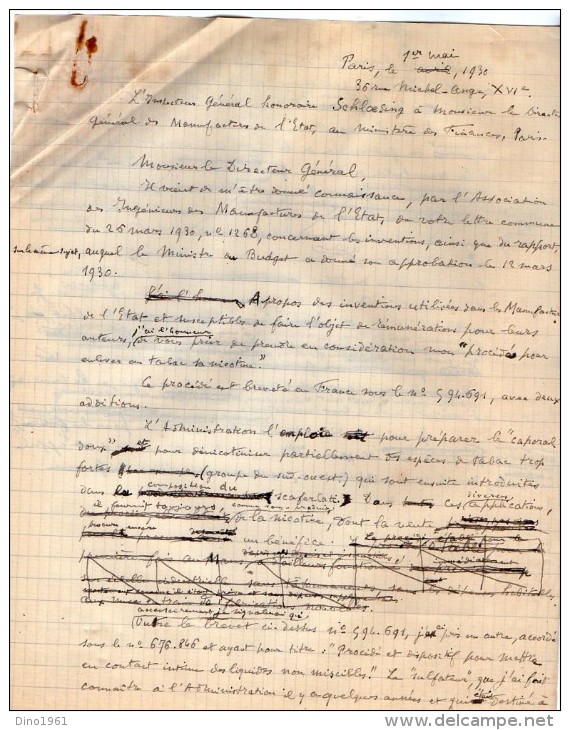 1er mai
Paris, le avril, 1930
36 rue Michel-Ange, XVIe
L'Inspecteur Général honoraire Schloesing à Monsieur le Directeur
général des Manufactures de l'Etat, au Ministère des Finances, Paris.
Monsieur le Directeur Général,
Il vient de m'être donné connaissance, par l'Association
des Ingénieurs des Manufactures de l'Etat, de votre lettre commune
du 26 mars 1930, n° 1268, concernant les inventions, ainsi que du rapport,
sur le même sujet, auquel le Ministre du Budget a donné son approbation le 12 mars
1930.
J'ai l'honneur A propos des inventions utilisées dans les Manufactures
de l'Etat et susceptibles de faire l'objet de rémunérations pour leurs
j'ai l'honneur
auteurs, de vous prier de prendre en considération mon "procédé pour
enlever au tabac sa nicotine."
Ce procédé est breveté en France sous le n° 594.691, avec deux
additions.
L'Administration l'emploie pour préparer le "caporal
doux" et pour dénicotiniser partiellement des espèces de tabac trop
fortes (groupe du sud-ouest) qui sont ensuite introduites
composition du
dans la scaferlati. Dans ces diverses applications,
il fournit toujours, comme sous-produit,
de la nicotine, dont la vente
procure un bénéfice.
nouvelles.
antérieurement, je signalerai que,
Outre le brevet ci-dessus n° 594.691, j'ai pris en outre, accordé
sous le n° 676.846 et ayant pour titre: "Procédé et dispositif pour mettre
en contact intime des liquides non miscibles." Le "sulfateur", que j'ai fait
connaître à l'Administration il y a quelques années et qui était destiné à
Dino1961
www.delcampe.net